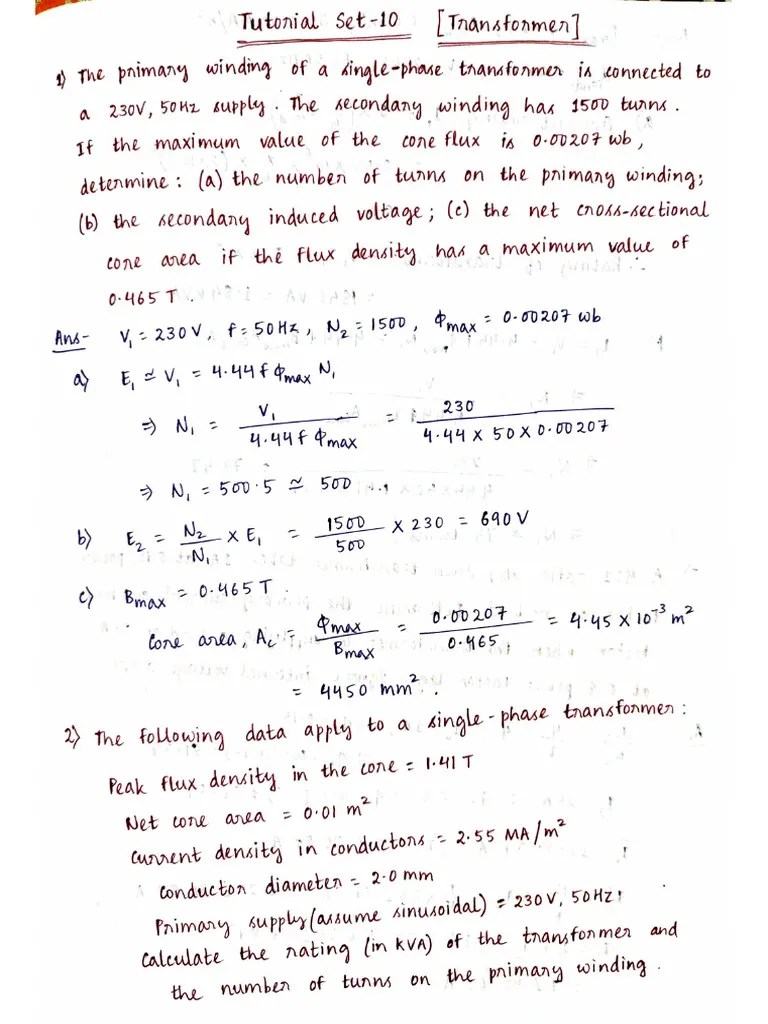 Tutorial Set-10 [Transformer]
1) The primary winding of a single-phase transformer is connected to
a 230V, 50Hz supply. The secondary winding has 1500 turns.
If the maximum value of the core flux is 0.00207 wb,
determine: (a) the number of turns on the primary winding;
(b) the secondary induced voltage; (c) the net cross-sectional
core area if the flux density has a maximum value of
0.465 T.
Ans- V₁ = 230V, f = 50Hz, N₂ = 1500, Φmax = 0.00207 wb
a) E₁ ≃ V₁ = 4.44 f Φmax N₁
⇒ N₁ = V₁ / 4.44 f Φmax = 230 / 4.44 × 50 × 0.00207
⇒ N₁ = 500.5 ≃ 500
b) E₂ = N₂/N₁ × E₁ = 1500/500 × 230 = 690 V
c) Bmax = 0.465 T.
Core area, Ac = Φmax/Bmax = 0.00207/0.465 = 4.45 × 10⁻³ m²
= 4450 mm².
2) The following data apply to a single-phase transformer:
Peak flux density in the core = 1.41 T
Net core area = 0.01 m²
Current density in conductors = 2.55 MA/m²
Conductor diameter = 2.0 mm
Primary supply (assume sinusoidal) = 230V, 50Hz
Calculate the rating (in kVA) of the transformer and
the number of turns on the primary winding.